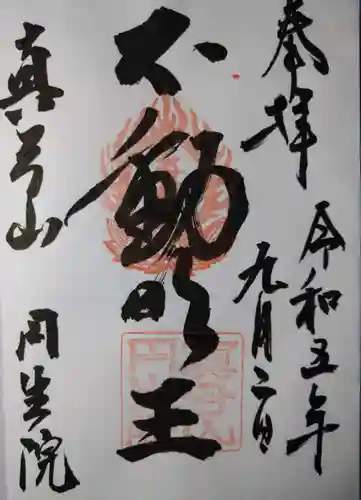 奉拝
令和五年
九月二日
不動明王
真弓山
円生院